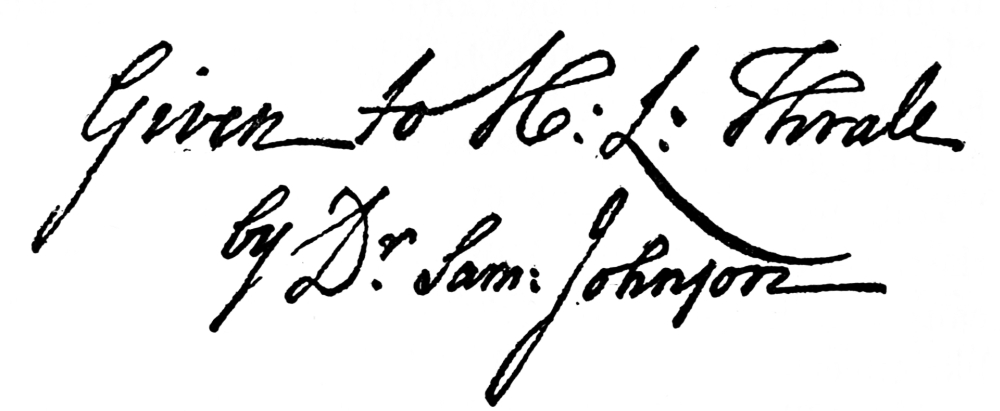 Given to H: L: Thrale
by Dr. Sam: Johnson